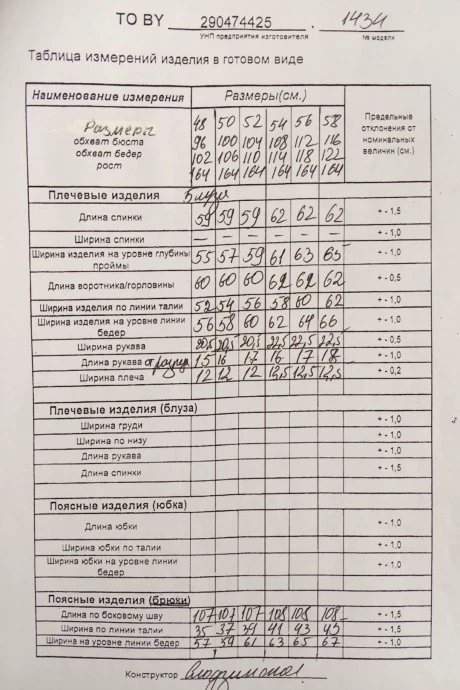 ТО BY 290474425 . 1434
УНП предприятия изготовителя № модели
Таблица измерений изделия в готовом виде
Наименование измерения Размеры(см.) Предельные отклонения от номинальных величин (см.)
Размеры 48 50 52 54 56 58
обхват бюста 96 100 104 108 112 116
обхват бедер 102 106 110 114 118 122
рост 164 164 164 164 164 164
Плечевые изделия Блуза
Длина спинки 59 59 59 62 62 62 + - 1,5
Ширина спинки – – – – – – + - 1,0
Ширина изделия на уровне глубины проймы 55 57 59 61 63 65 + - 1,0
Длина воротника/горловины 60 60 60 62 62 62 + - 0,5
Ширина изделия по линии талии 52 54 56 58 60 62 + - 1,0
Ширина изделия на уровне линии бедер 56 58 60 62 64 66 + - 1,0
Ширина рукава 20,5 20,5 20,5 22,5 22,5 22,5 + - 0,5
Длина рукава 15 16 17 16 17 18 + - 1,0
Ширина плеча 12 12 12 12,5 12,5 12,5 + - 0,2
Плечевые изделия (блуза)
Ширина груди + - 1,0
Ширина по низу + - 1,0
Длина рукава + - 1,0
Длина спинки + - 1,5
Поясные изделия (юбка)
Длина юбки + - 1,0
Ширина юбки по талии + - 1,0
Ширина юбки на уровне линии бедер + - 1,0
Поясные изделия (брюки)
Длина по боковому шву 107 107 107 108 108 108 + - 1,5
Ширина по линии талии 35 37 39 41 43 45 + - 1,5
Ширина на уровне линии бедер 57 59 61 63 65 67 + - 1,0
Конструктор